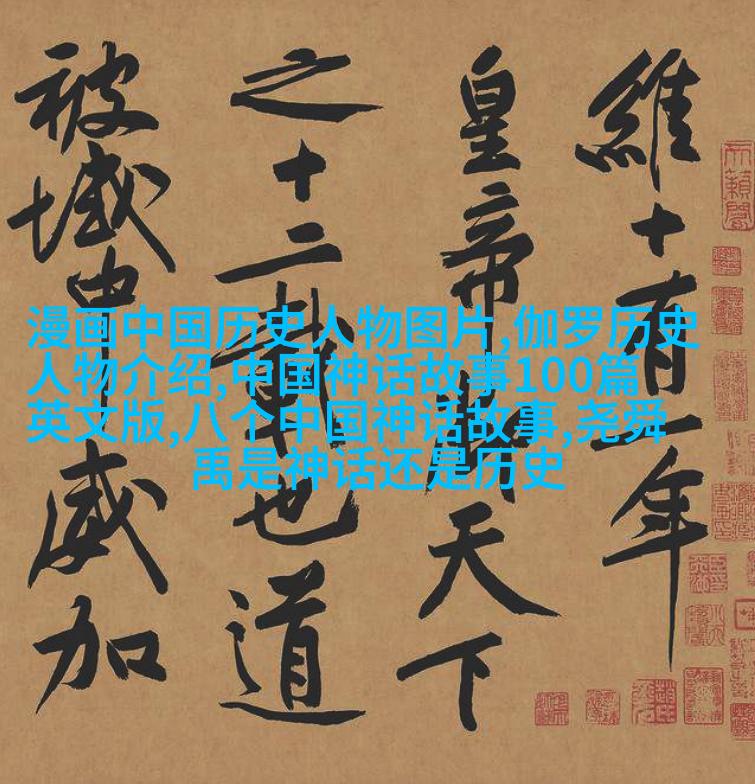 維十有一年
皇帝御天下
之十二載也道
被域中威加
漫画中国历史人物图片,伽罗历史
人物介绍,中国神话故事100篇
英文版,八个中国神话故事,尧舜
禹是神话还是历史